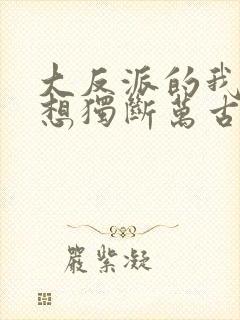 大反派的我
想獨斷萬古
嚴紫凝